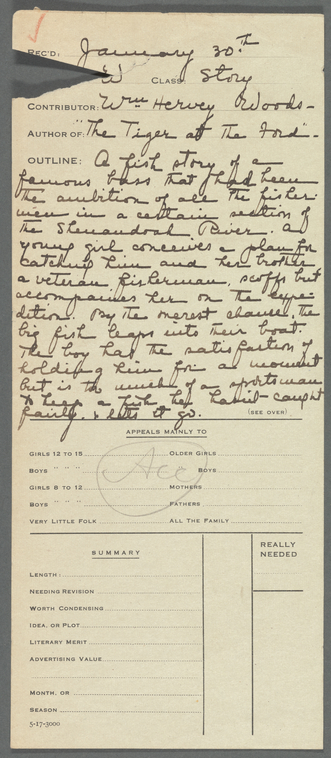 REC'D: January 30th
W CLASS Story
CONTRIBUTOR: Wm Hervey Woods-
AUTHOR OF: "The Tiger at the Ford"-
OUTLINE: A fish story of a
famous bass that had been
the ambition of all the fisher-
men in a certain section of
the Shenandoah River. A
young girl conceives a plan for
catching him and her brother
a veteran fisherman, scoffs but
accompanies her on the expe-
dition. By the merest chance, the
big fish leaps into their boat.
The boy has the satisfaction of
holding him for a moment
but is to much of a sportsman
to keep a fish he hasn't caught
fairly & lets it go. (SEE OVER)
APPEALS MAINLY TO
GIRLS 12 TO 15 OLDER GIRLS
BOYS " " " BOYS
GIRLS 8 TO 12 MOTHERS
BOYS " " " FATHERS
VERY LITTLE FOLK ALL THE FAMILY
Acc
SUMMARY
REALLY
NEEDED
LENGTH:
NEEDING REVISION
WORTH CONDENSING
IDEA, OR PLOT
LITERARY MERIT
ADVERTISING VALUE
MONTH, OR
SEASON
5-17-3000